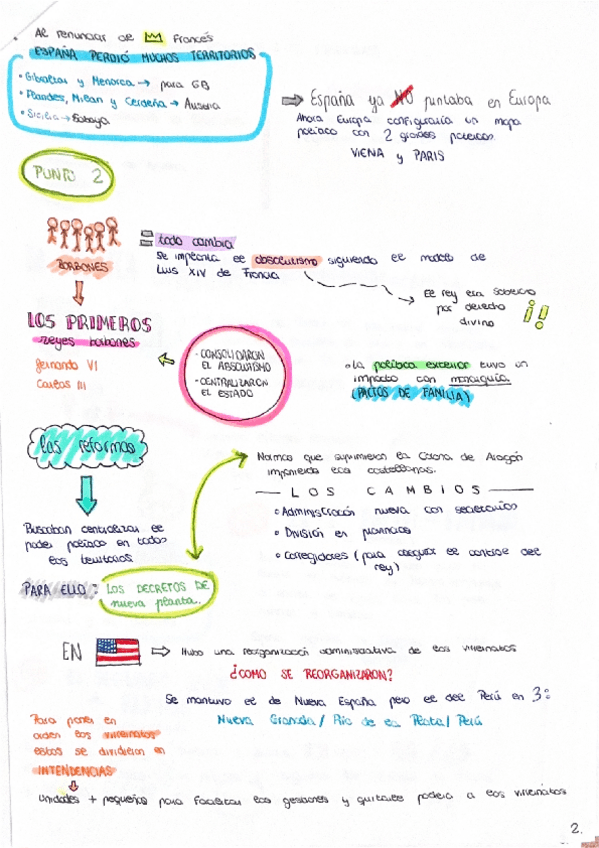 Al renunciar al francés
ESPAÑA PERDIÓ MUCHOS TERRITORIOS
• Gibraltar y Menorca → para GB
• Flandes, Milan y Cerdeña → Austria
• Sicilia → Saboya
⇒ España ya NO puntaba en Europa
Ahora Europa configuraría un mapa
político con 2 grandes
VIENA y PARIS
PUNTO 2
BORBONES
= todo cambia
Se implanta el absolutismo siguiendo el modelo de
Luis XIV de Francia
El rey era soberano
por derecho
divino !!
LOS PRIMEROS
reyes borbones
Fernando VI
Carlos III
• CONSOLIDARON
EL ABSOLUTISMO
• CENTRALIZARON
EL ESTADO
• La política exterior tuvo un
impacto con monarquía.
(PACTOS DE FAMILIA)
las reformas
Buscaban centralizar el
poder político en todos
los territorios
Normas que suprimieron la Corona de Aragón
imponiendo las castellanas.
LOS CAMBIOS
• Administración nueva con secretarios
• División en provincias
• Corregidores (para asegurar el control del
rey)
PARA ELLO: LOS DECRETOS DE
nueva planta.
EN ⇒ Hubo una reorganización administrativa de los virreinatos
¿COMO SE REORGANIZARON?
Se mantuvo el de Nueva España pero el del Perú en 3:
Nueva Granada / Río de la Plata / Perú
Para poner en
orden los virreinatos
estos se dividieron en
INTENDENCIAS
Unidades + pequeñas para facilitar las gestiones y quitarle poder a los virreinatos
2.